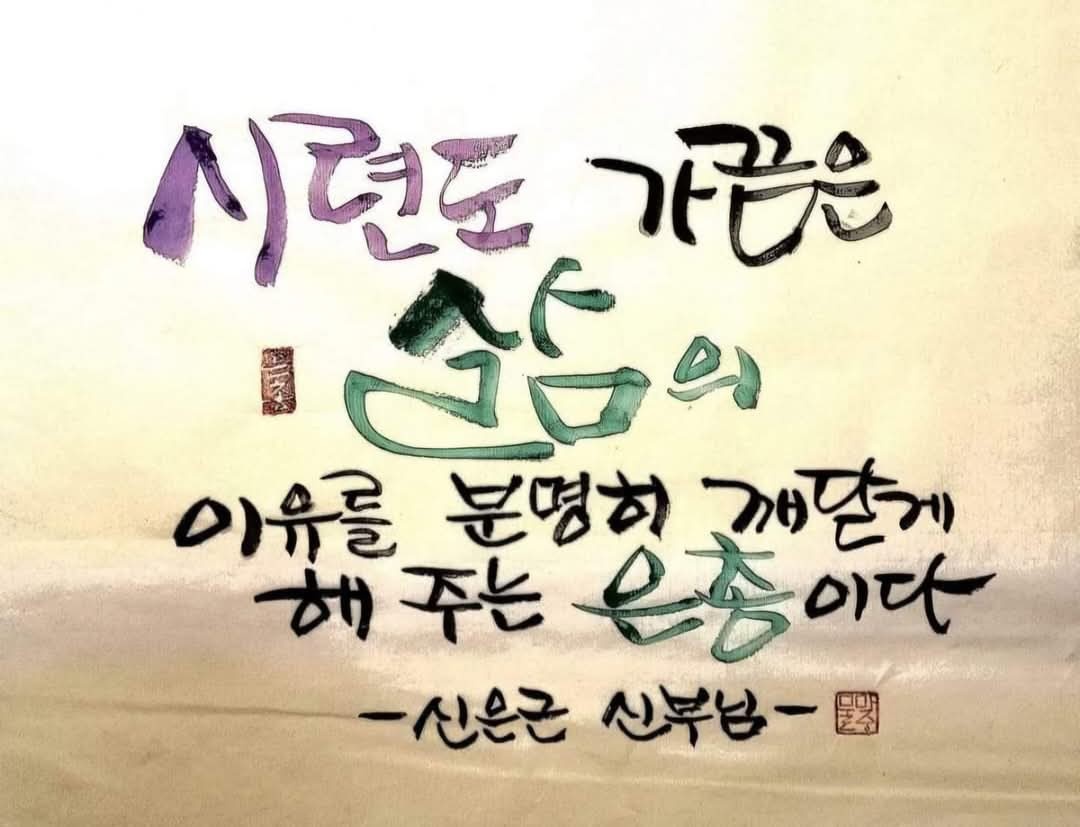 시련도 가끔은
삶의
이유를 분명히 깨닫게
해 주는 은총이다
-신은근 신부님-